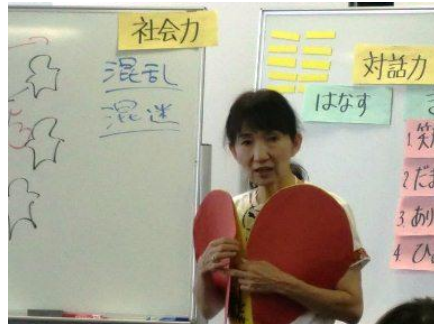 社会力
混乱
混迷
対話力
はなす
1.
2.だま
3.あり
4.ひ